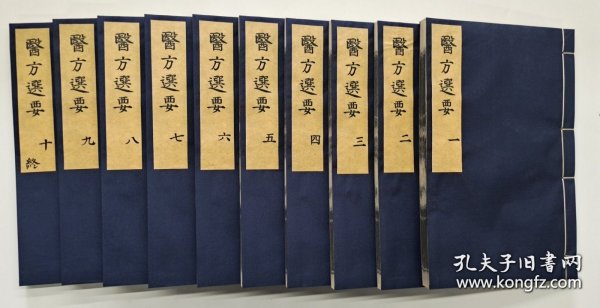 醫方選要 一
醫方選要 二
醫方選要 三
醫方選要 四
醫方選要 五
醫方選要 六
醫方選要 七
醫方選要 八
醫方選要 九
醫方選要 十終
孔夫子旧书网
www.kongfz.com